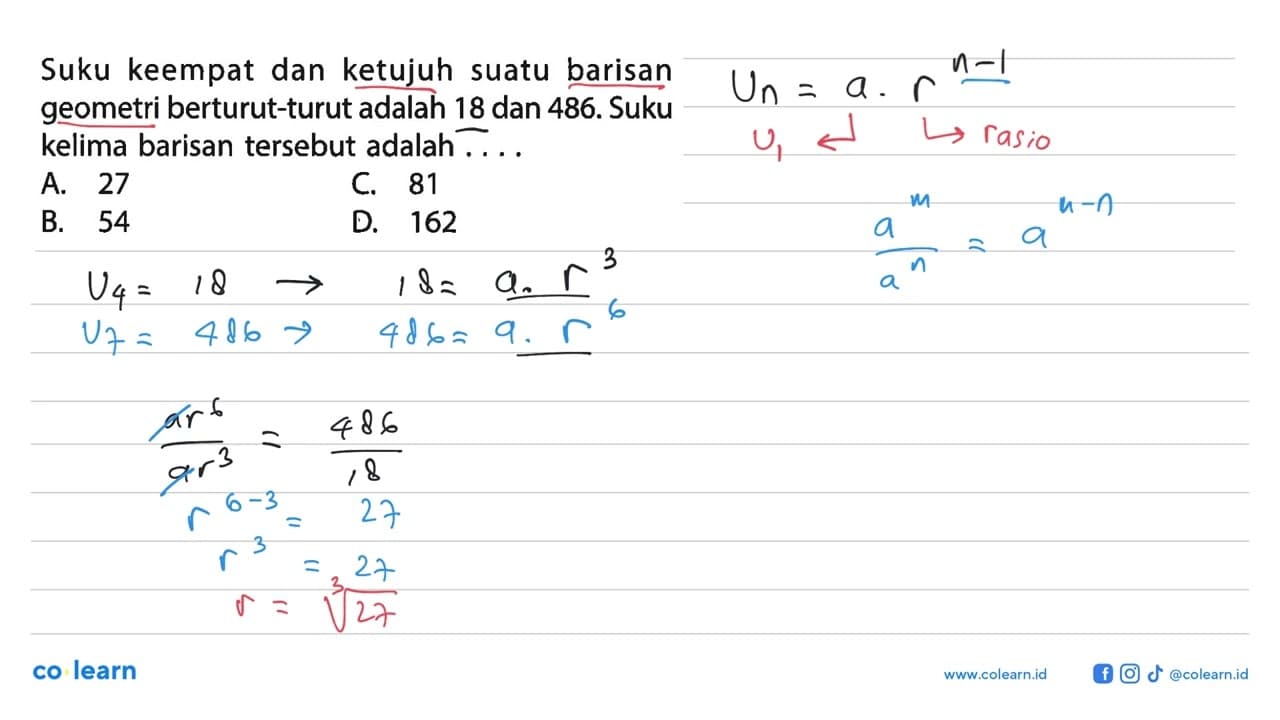 Suku keempat dan ketujuh suatu barisan
geometri berturut-turut adalah 18 dan 486. Suku
kelima barisan tersebut adalah . . . .
A. 27 C. 81
B. 54 D. 162
Un = a . r^(n-1)
U₁ ↲ ↳ rasio
a^m / a^n = a^(m-n)
U₄ = 18 → 18 = a . r³
U₇ = 486 → 486 = a . r⁶
ar⁶ / ar³ = 486 / 18
r^(6-3) = 27
r³ = 27
r = ³√27
co learn
www.colearn.id @colearn.id